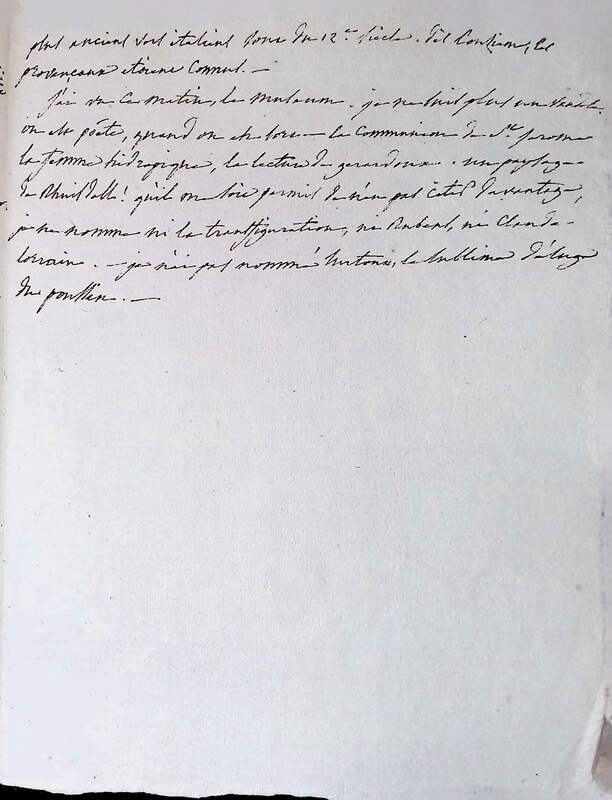 plus anciens vers italiens sont du 12.e siècle. dès lors les
provençaux étoient connus. —
j'ai vu ce matin, le museum. je ne suis plus un vandale.
on est poète, quand on en sort — la communion de St. jerome
la femme hidropique, la lecture de gerardow. un paysage
de Ruisdall! qu'il me soit permis de n'en pas citer davantage,
je ne nomme ni la transfiguration, ni Rubens, ni Claude
lorrain. — je n'ai pas nommé surtout, le sublime déluge
du poussin. —